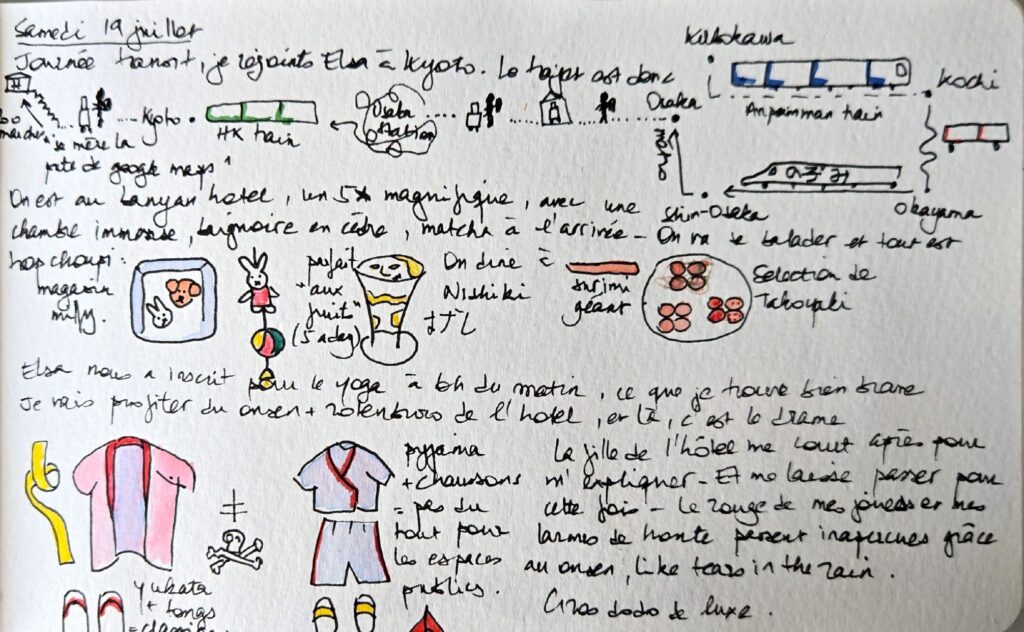 Samedi 19 juillet
Journée transit, je rejoints Elsa à Kyoto. Le trajet est donc
Kubokawa
Anpanman train
Kochi
Okayama
のぞみ
Shin-Osaka
métro
Osaka
Osaka station
HK train
Kyoto
"je mère la
pate de google maps"
On est au banyan hotel, un 5* magnifique, avec une
chambre immense, baignoire en cèdre, matcha à l'arrivée - On va se balader et tout est
trop choupi :
magasin
miffy.
parfait
"aux
fruits"
(5 a day)
On dine à
Nishiki
すし
surimi
géant
Selection de
Takoyaki
Elsa nous a inscrit pour le yoga à 6h du matin, ce que je trouve bien brave
Je vais profiter du onsen + rotenburo de l'hotel, et là, c'est le drame
yukata
+ tongs
≠
pyjama
+ chaussons
= pas du
tout pour
les espaces
publics.
La fille de l'hôtel me court après pour
m'expliquer - Et me laisse passer pour
cette fois - Le rouge de mes joues et mes
larmes de honte passent inaperçues grâce
au onsen, like tears in the rain.
Gros dodo de luxe.